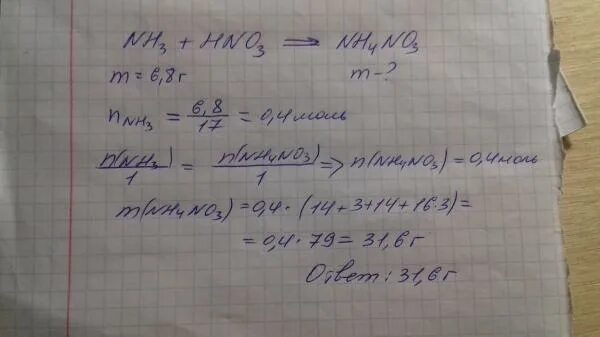 NH₃ + HNO₃ ⟹ NH₄NO₃
m = 6,8 г m - ?
n NH₃ = 6,8/17 = 0,4 моль
n(NH₃)/1 = n(NH₄NO₃)/1 => n(NH₄NO₃) = 0,4 моль
m(NH₄NO₃) = 0,4 · (14 + 3 + 14 + 16·3) =
= 0,4 · 79 = 31,6 г
Ответ: 31,6 г